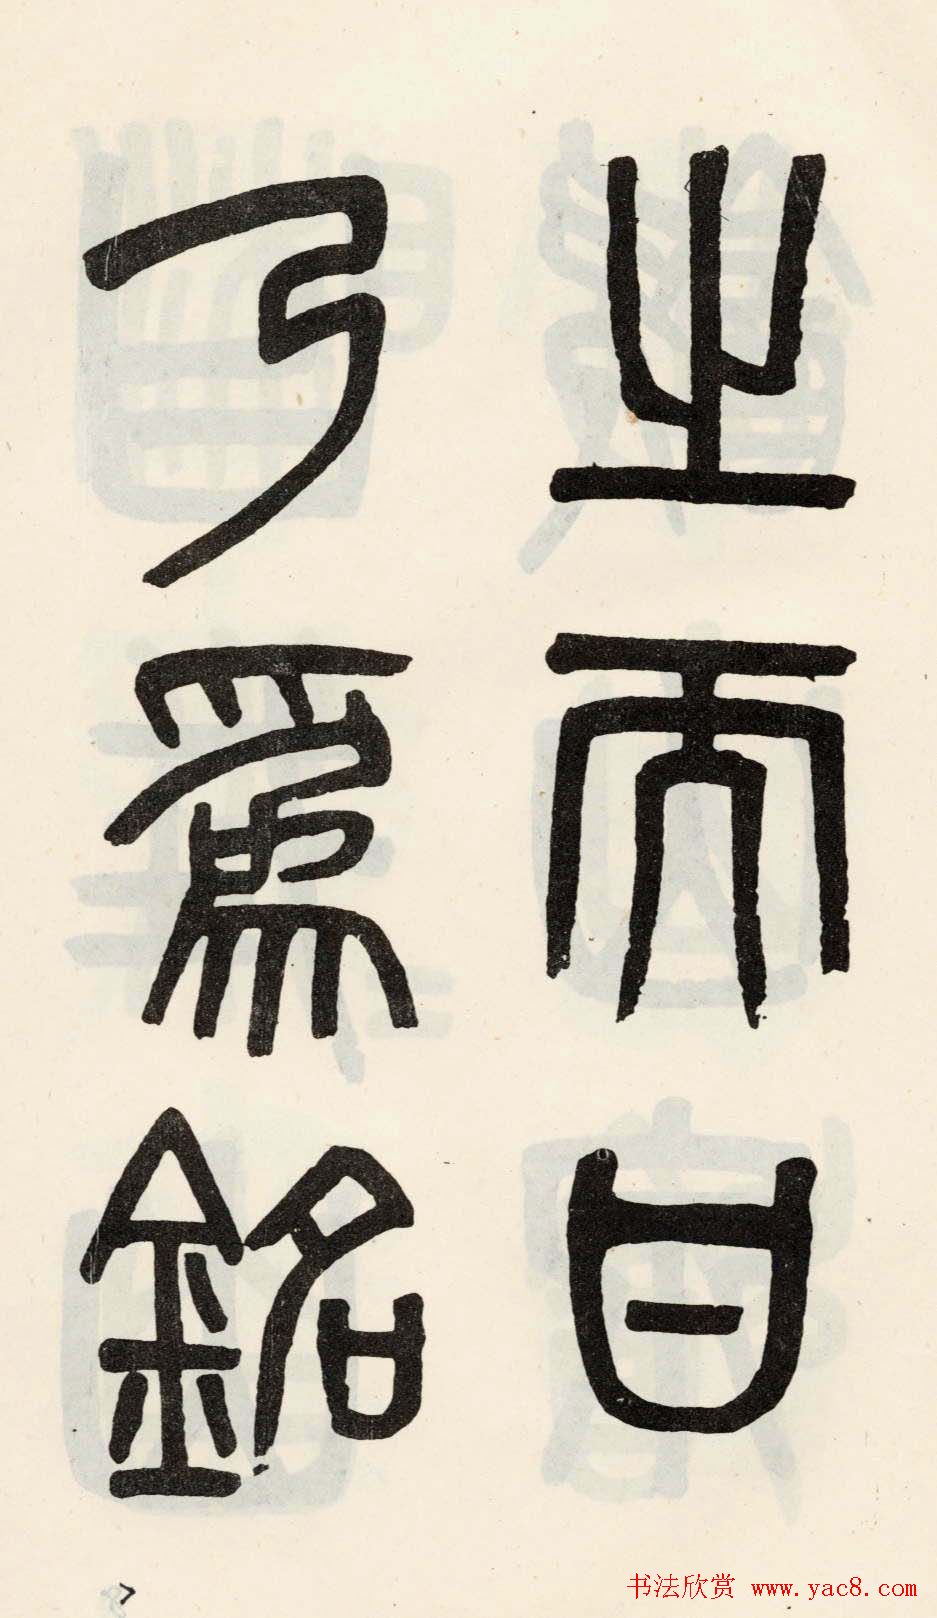 之而甘
乃爲銘
7
书法欣赏 www.yac8.com